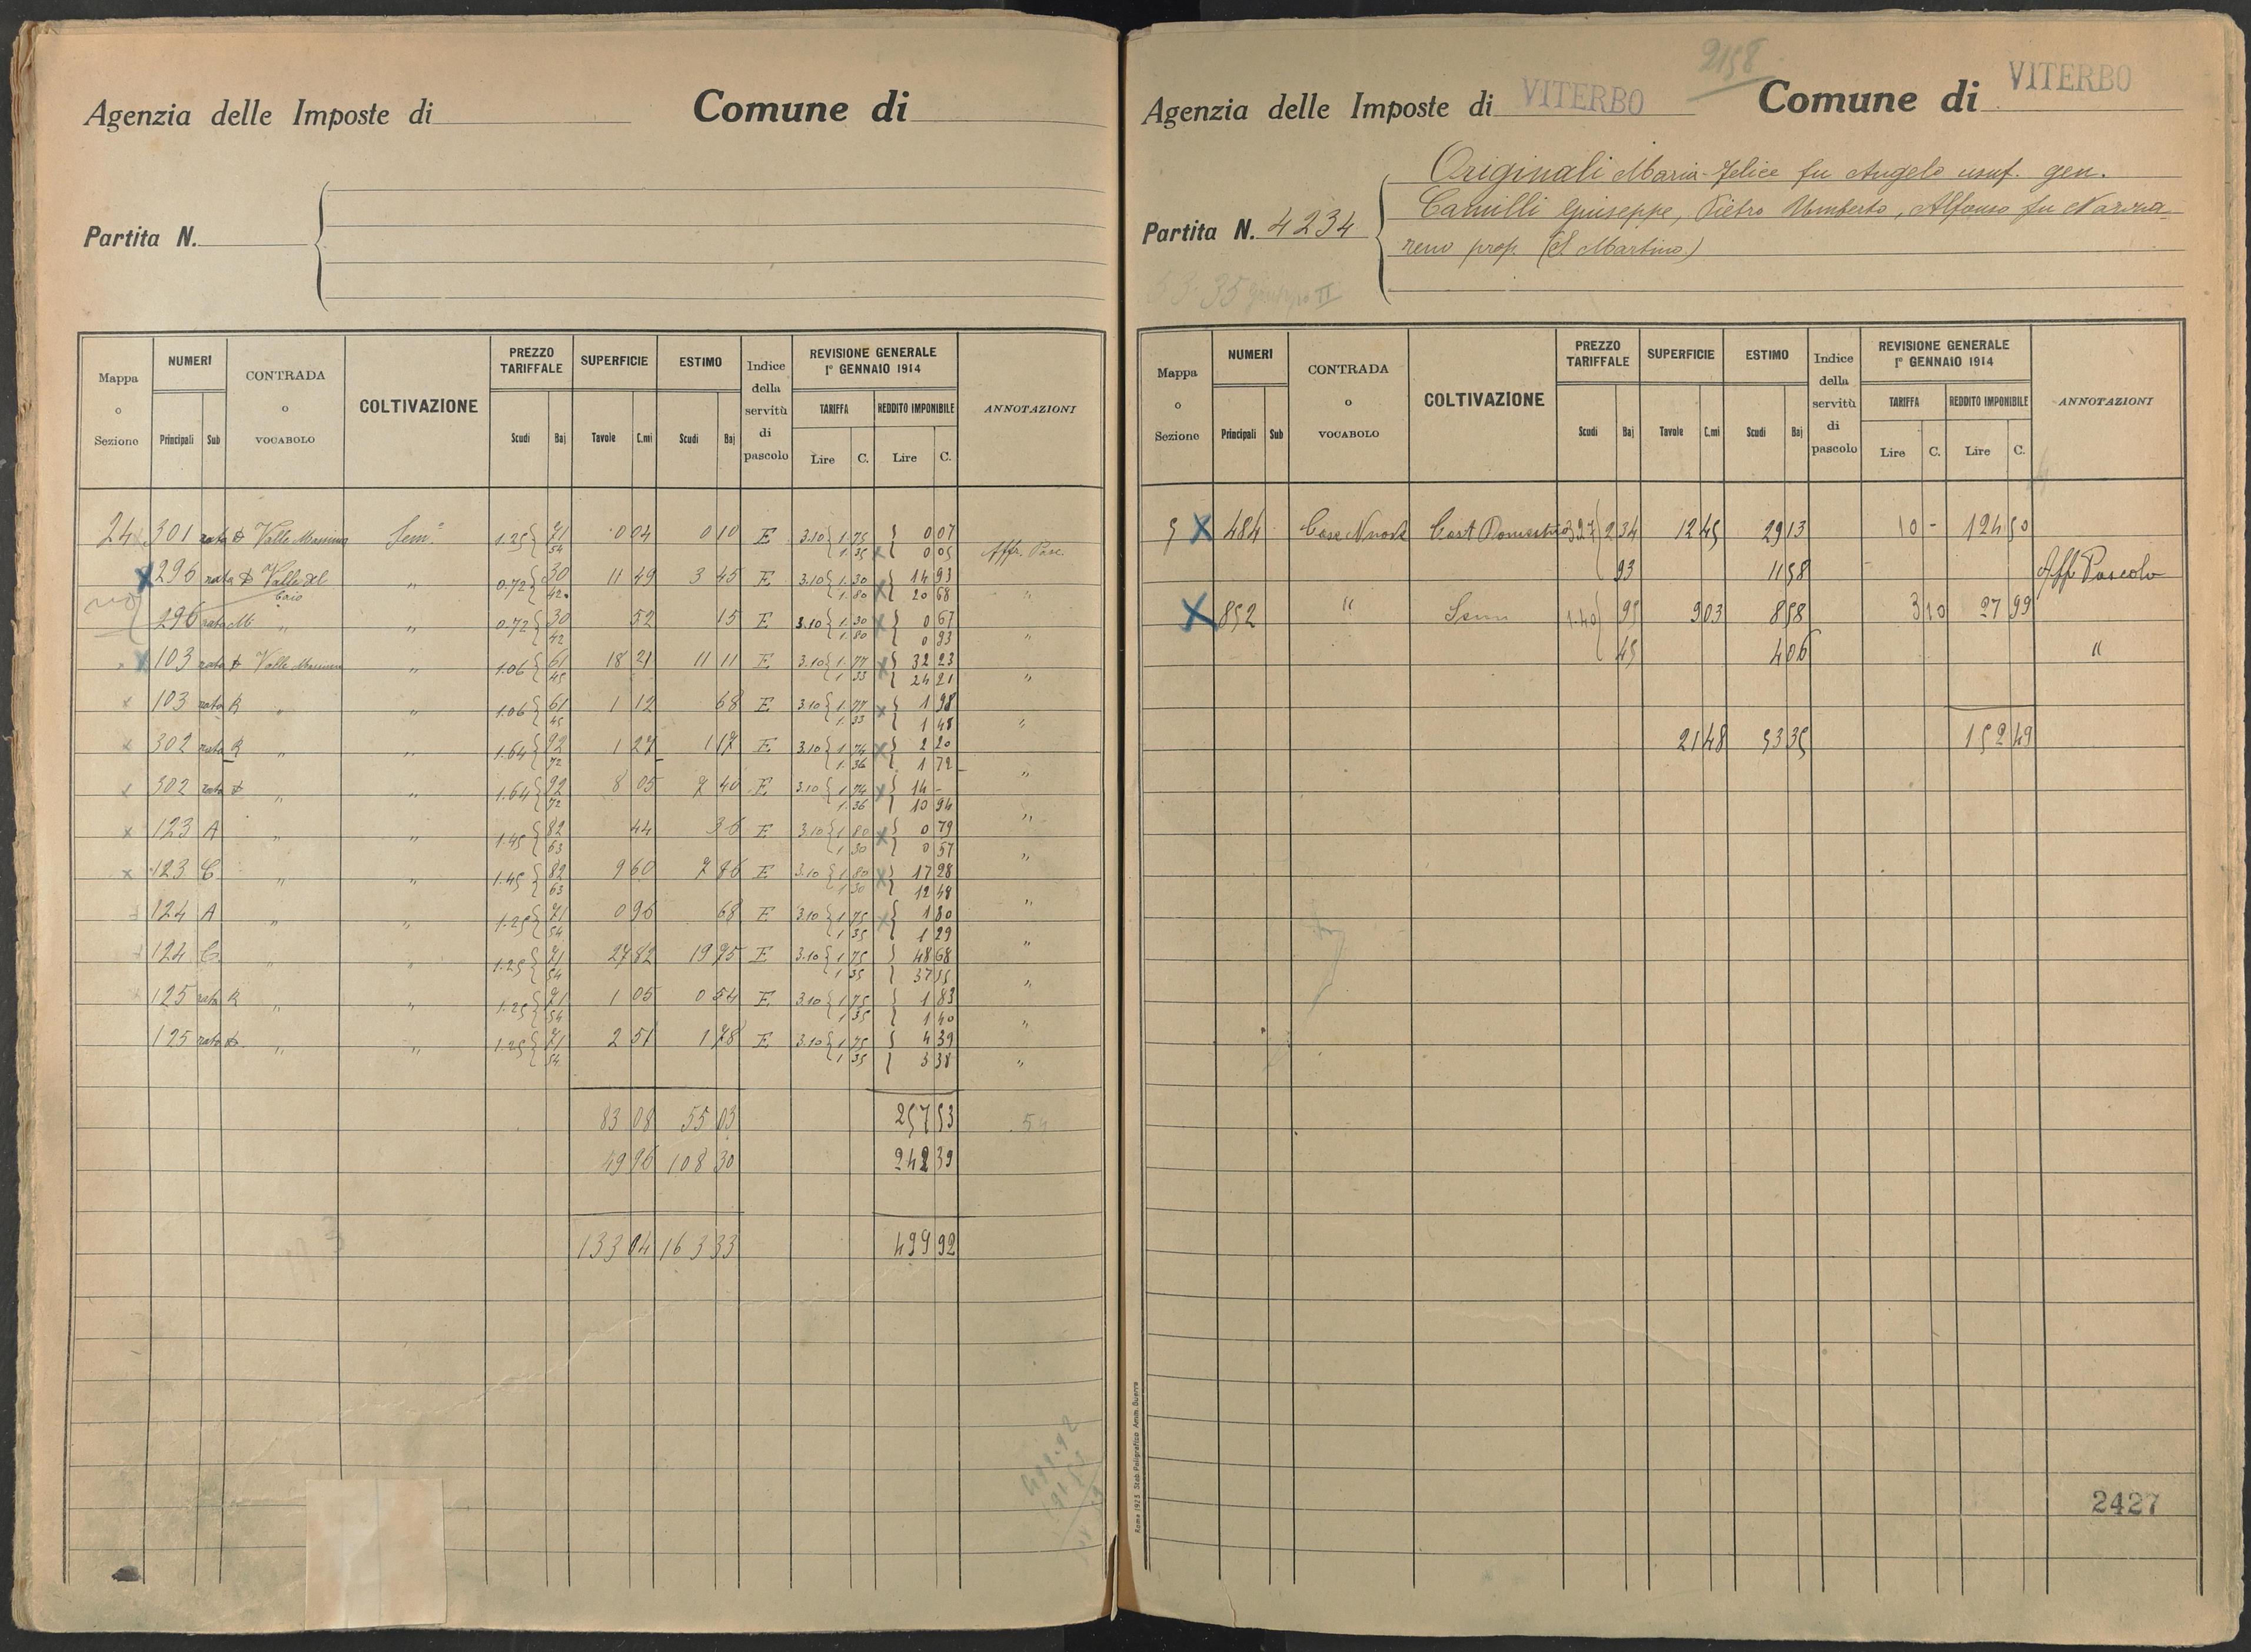 Agenzia delle Imposte di
Comune di
Partita N.
Mappa o Sezione | NUMERI Principali Sub | CONTRADA o VOCABOLO | COLTIVAZIONE | PREZZO TARIFFALE Scudi Baj | SUPERFICIE Tavole C.mi | ESTIMO Scudi Baj | Indice della servitù di pascolo | REVISIONE GENERALE 1° GENNAIO 1914 TARIFFA Lire C. REDDITO IMPONIBILE Lire C. | ANNOTAZIONI
24 301 rata Valle Sem. 1.25 { 71 0 04 0 10 E 3.10 { 1.75 } 0 07
54 1.35 0 05 Aff. Pasc.
296 rata Valle del 〃 0.72 { 30 11 49 3 45 E 3.10 { 1.30 } 14 93
Caio 42 1.80 20 68 〃
296 rata M 〃 〃 0.72 { 30 52 15 E 3.10 { 1.30 } 0 67
42 1.80 0 93 〃
103 rata Valle 〃 1.06 { 61 18 21 11 11 E 3.10 { 1.77 } 32 23
45 1.33 24 21 〃
103 rata R 〃 〃 1.06 { 61 1 12 68 E 3.10 { 1.77 } 1 98
45 1.33 1 48 〃
302 rata R 〃 〃 1.64 { 92 1 27 1 17 E 3.10 { 1.74 } 2 20
72 1.36 1 72
302 rata 〃 〃 1.64 { 92 8 05 7 40 E 3.10 { 1.74 } 14 -
72 1.36 10 94 〃
123 A 〃 〃 1.45 { 82 44 36 E 3.10 { 1.80 } 0 79
63 1.30 0 57 〃
123 C 〃 〃 1.45 { 82 9 60 7 86 E 3.10 { 1.80 } 17 28
63 1.30 12 48 〃
124 A 〃 〃 1.25 { 71 0 96 68 E 3.10 { 1.75 } 1 80
54 1.35 1 29 〃
124 C 〃 〃 1.25 { 71 27 82 19 75 E 3.10 { 1.75 } 48 68
54 1.35 37 55 〃
125 rata R 〃 〃 1.25 { 71 1 05 0 54 E 3.10 { 1.75 } 1 83
54 1.35 1 40 〃
125 rata 〃 〃 1.25 { 71 2 51 1 78 E 3.10 { 1.75 } 4 39
54 1.35 3 38 〃
83 08 55 03 257 53
49 96 108 30 242 39
133 04 163 33 499 92
2158
Agenzia delle Imposte di VITERBO
Comune di VITERBO
Partita N. 4234
Originali Maria-Felice fu Angelo usuf. gen.
Camilli Giuseppe, Pietro Umberto, Alfonso fu Nazza-
reno prop. (S. Martino)
Mappa o Sezione | NUMERI Principali Sub | CONTRADA o VOCABOLO | COLTIVAZIONE | PREZZO TARIFFALE Scudi Baj | SUPERFICIE Tavole C.mi | ESTIMO Scudi Baj | Indice della servitù di pascolo | REVISIONE GENERALE 1° GENNAIO 1914 TARIFFA Lire C. REDDITO IMPONIBILE Lire C. | ANNOTAZIONI
5 X 484 Case Nuove Cast Domestico 3.27 { 2 34 12 45 29 13 10 - 124 50
93 11 58 Aff Pascolo
X 852 〃 Sem 1.40 { 95 9 03 8 58 3 10 27 99
45 4 06 〃
21 48 53 35 152 49
2427
Roma 1925 Stab. Poligrafico Amm. Guerra